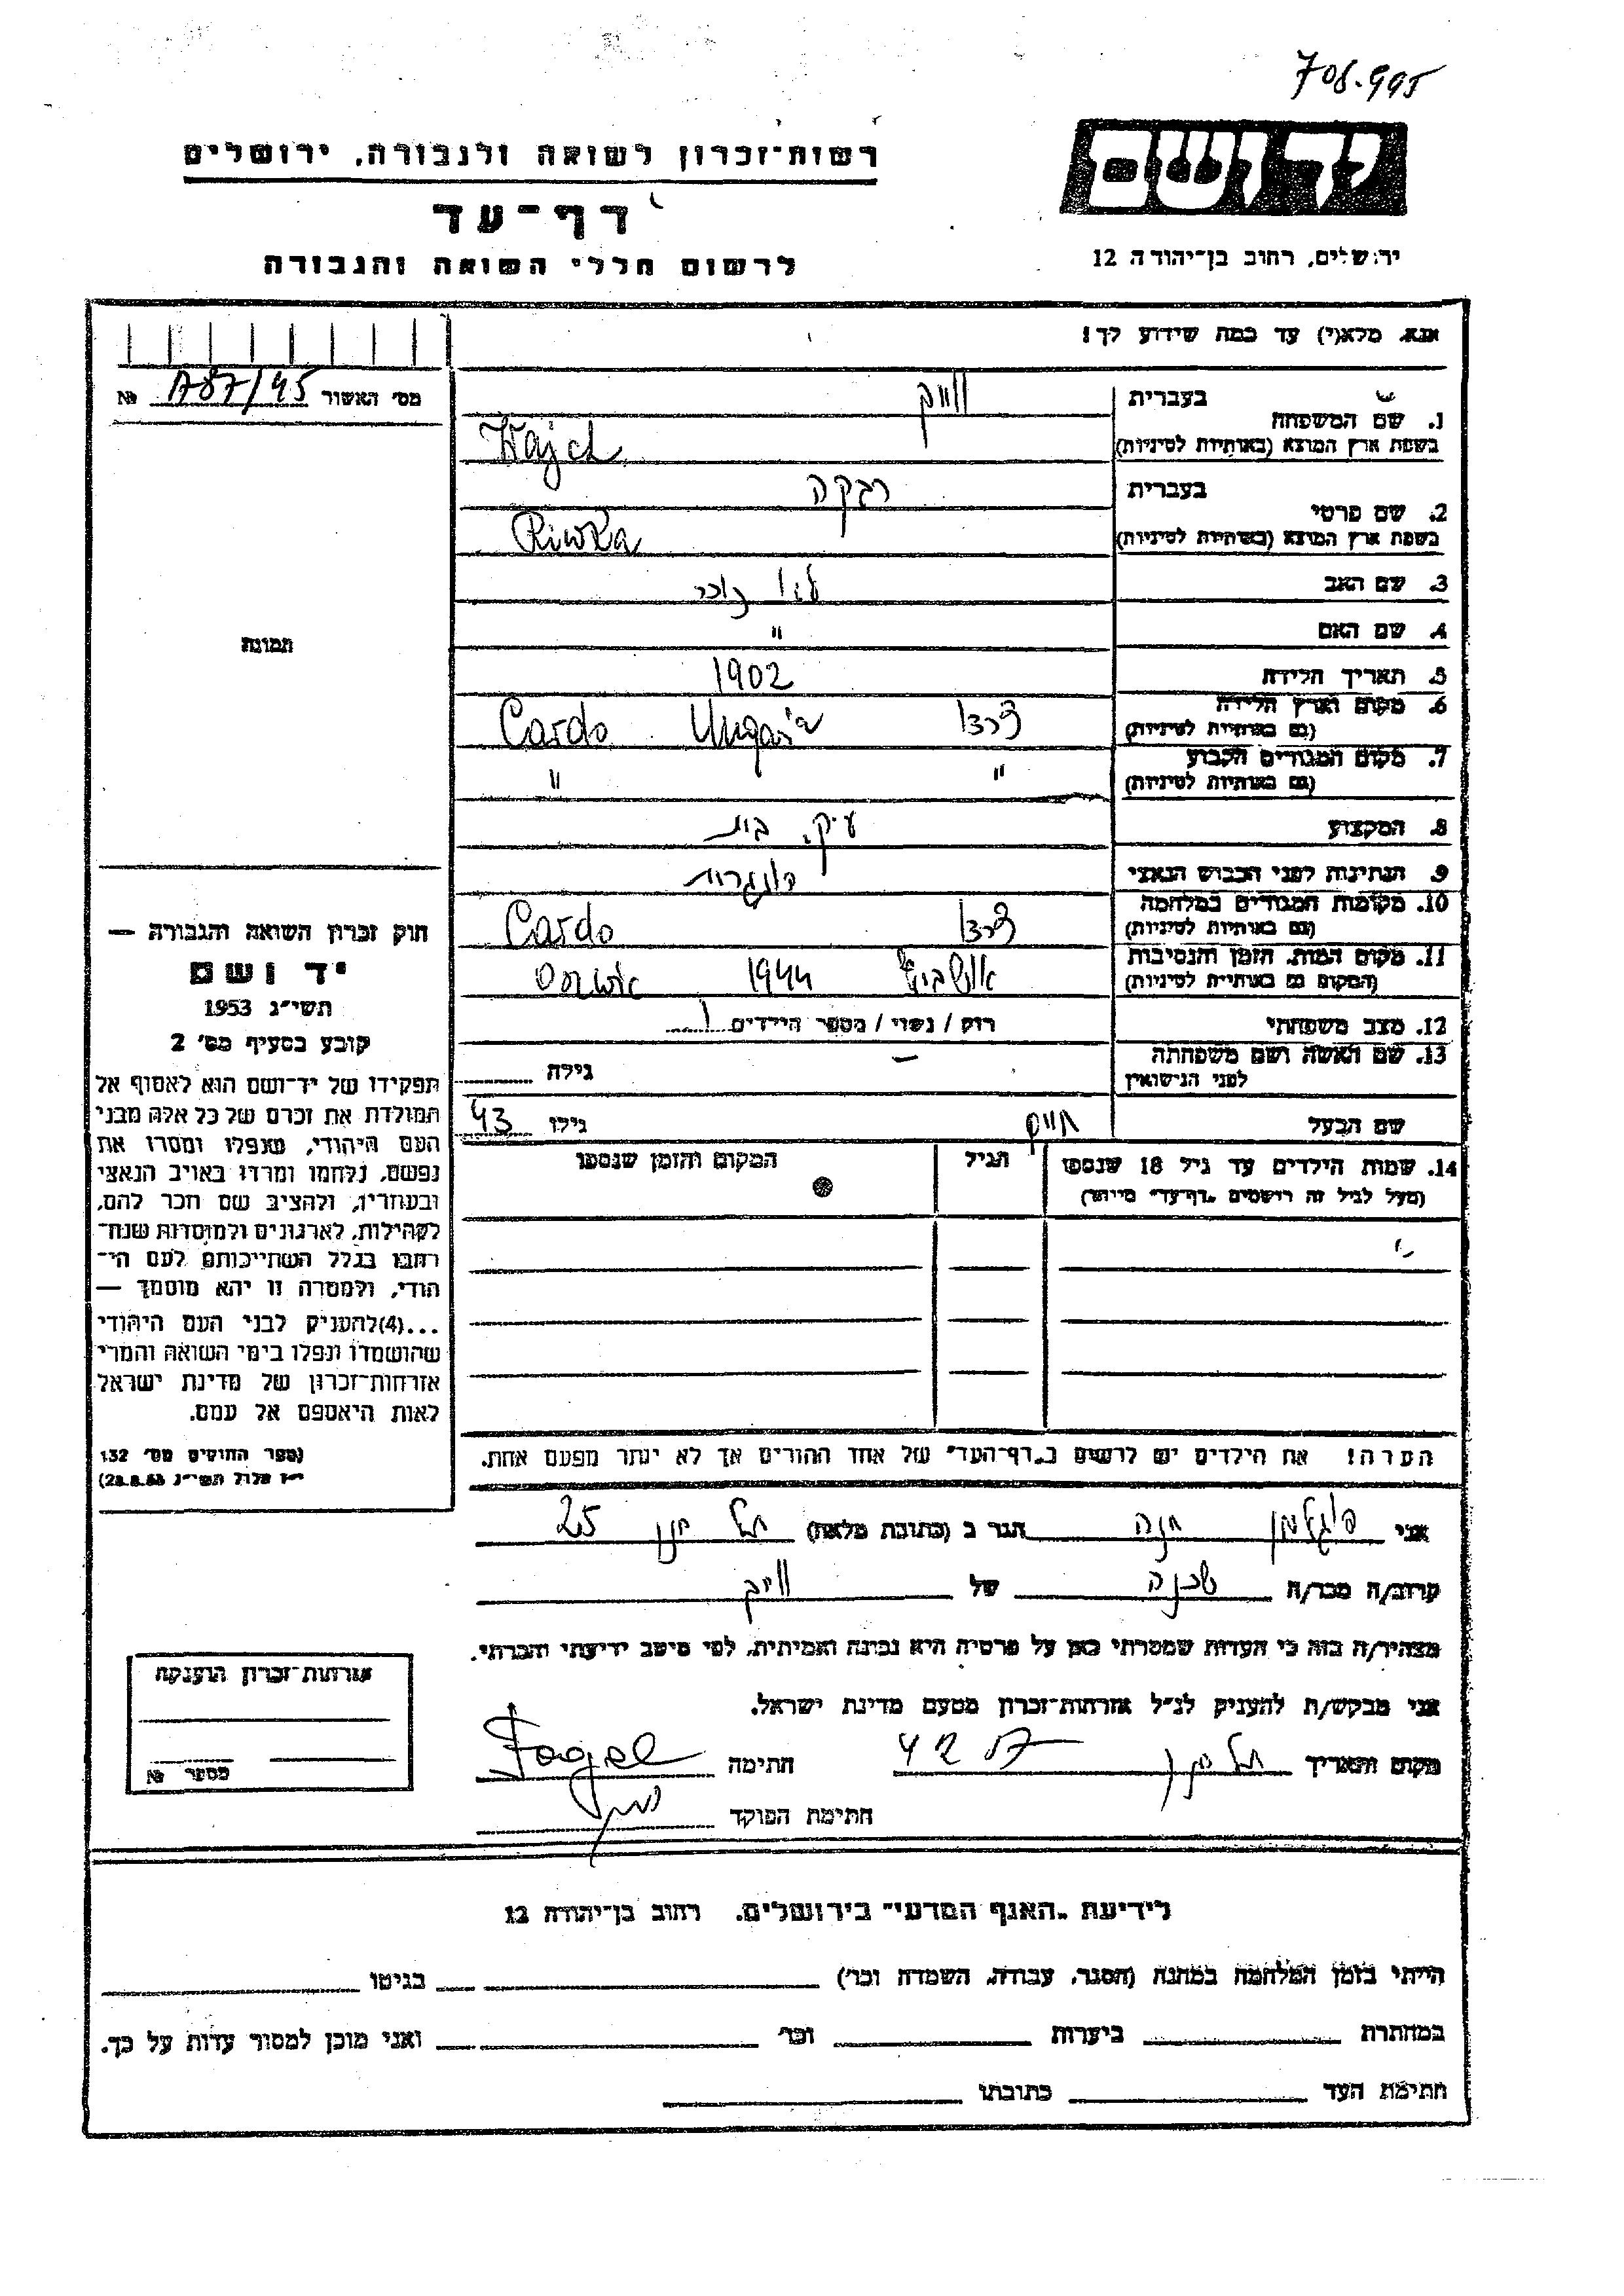 708.995
רשות־זכרון לשואה ולגבורה, ירושלים
יד ושם
דף־עד
ירושלים, רחוב בן־יהודה 12
לרשום חללי השואה והגבורה
אנא, מלא(י) עד כמה שידוע לך!
מס׳ האשור 787/45 №
1. שם המשפחה
בעברית
בשפת ארץ המוצא (באותיות לטיניות)
2. שם פרטי
בעברית רבקה
בשפת ארץ המוצא (באותיות לטיניות) Riwka
3. שם האב לא זוכר
4. שם האם "
5. תאריך הלידה 1902
6. מקום וארץ הלידה
(גם באותיות לטיניות) Cardo
7. מקום המגורים הקבוע " "
(גם באותיות לטיניות)
8. המקצוע עק. בית
9. הנתינות לפני הכבוש הנאצי הונגרית
10. מקומות המגורים במלחמה
(גם באותיות לטיניות) Cardo
11. מקום המות, הזמן והנסיבות
(המקום גם באותיות לטיניות) אושביץ 1944
12. מצב משפחתי רוק / נשוי / מספר הילדים 1
13. שם האשה ושם משפחתה
לפני הנישואין — גילה
שם הבעל גילו 43
14. שמות הילדים עד גיל 18 שנספו
(מעל לגיל זה רושמים „דף־עד" מיוחד)
הגיל
המקום והזמן שנספו
הערה! את הילדים יש לרשום ב„דף־העד" של אחד ההורים אך לא יותר מפעם אחת.
תמונה
חוק זכרון השואה והגבורה —
יד ושם
תשי״ג 1953
קובע בסעיף מס׳ 2
תפקידו של יד־ושם הוא לאסוף אל
המולדת את זכרם של כל אלה מבני
העם היהודי, שנפלו ומסרו את
נפשם, נלחמו ומרדו באויב הנאצי
ובעוזריו, ולהציב שם וזכר להם,
לקהילות, לארגונים ולמוסדות שנח־
רבו בגלל השתייכותם לעם הי־
הודי, ולמטרה זו יהא מוסמך —
...(4)להעניק לבני העם היהודי
שהושמדו ונפלו בימי השואה והמרי
אזרחות־זכרון של מדינת ישראל
לאות היאספם אל עמם.
(ספר החוקים מס׳ 132
י״ז אלול תשי״ג 28.8.53)
אני חנה הגר ב (כתובת מלאה) 25
קרוב/ה מכר/ה שכנה של
מצהיר/ה בזה כי העדות שמסרתי כאן על פרטיה היא נכונה ואמיתית, לפי מיטב ידיעתי והכרתי.
אני מבקש/ת להעניק לנ״ל אזרחות־זכרון מטעם מדינת ישראל.
מקום ותאריך חתימה
חתימת הפוקד
אזרחות־זכרון הוענקה
מספר №
לידיעת „האגף המדעי" בירושלים, רחוב בן־יהודה 12
הייתי בזמן המלחמה במחנה (הסגר, עבודה, השמדה וכו׳) בגיטו
במחתרת ביערות וכו׳ ואני מוכן למסור עדות על כך.
חתימת העד כתובתו